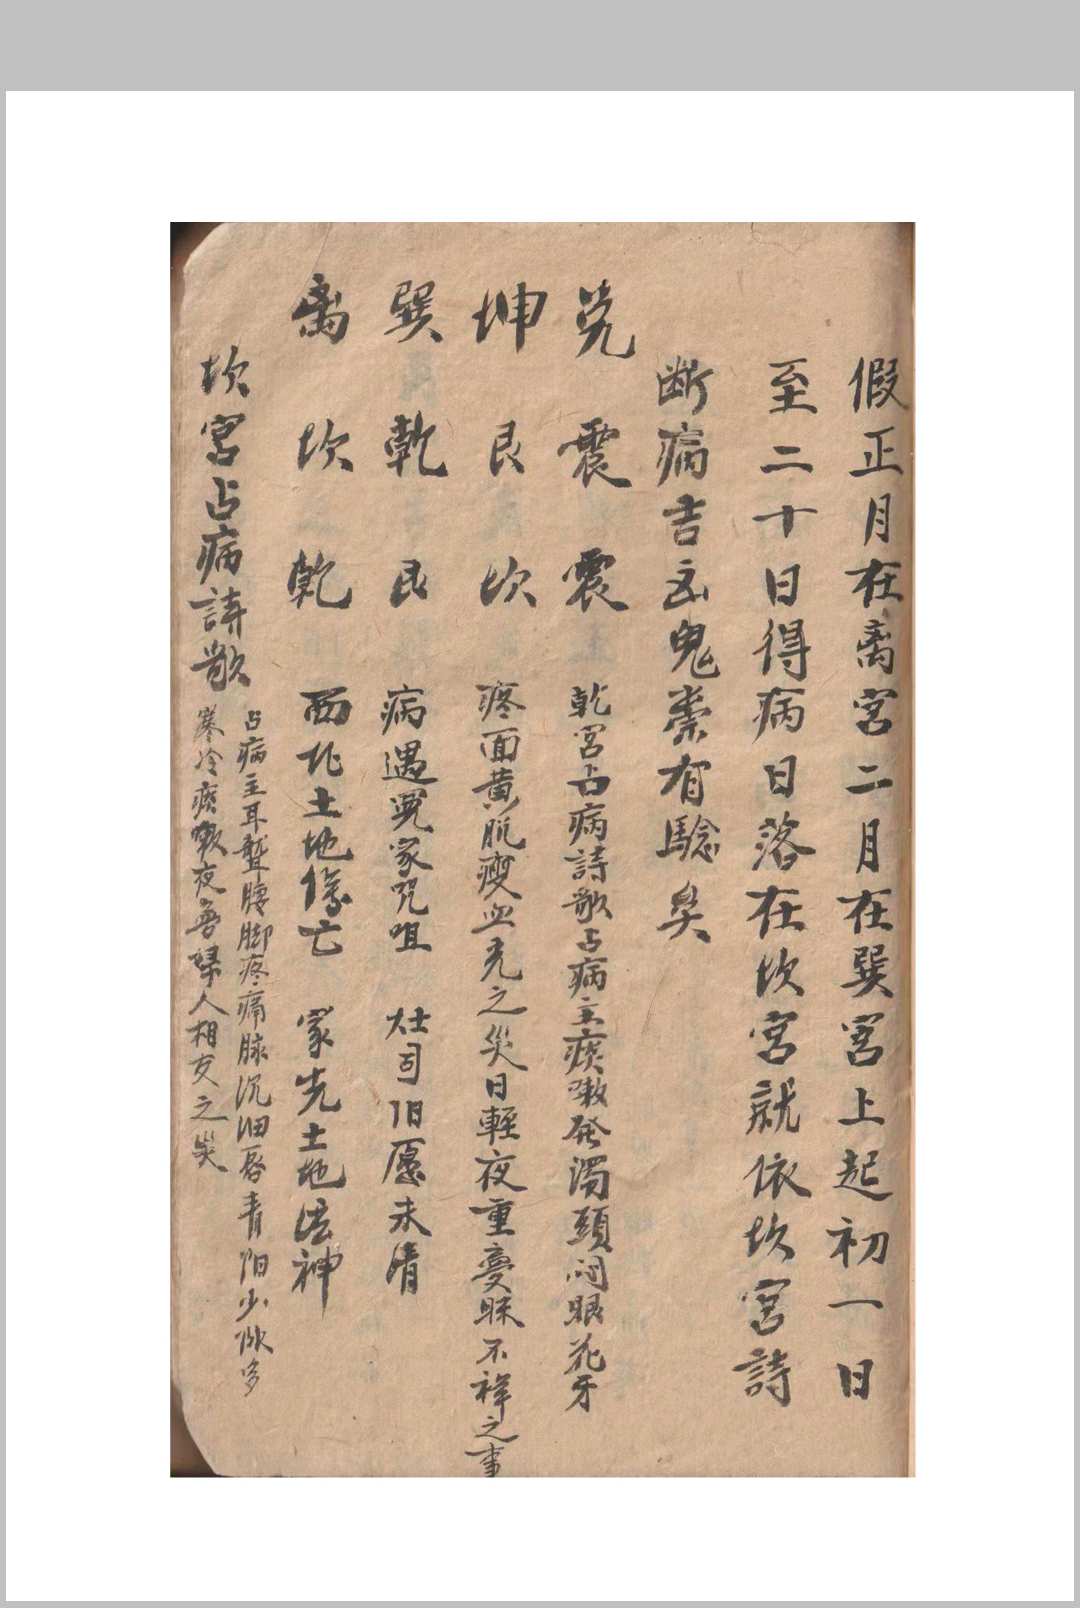 假正月在离宮二月在巽宮上起初一日
至二十日得病日落在坎宮就依坎宮詩
断病吉凶鬼祟有驗矣
兑 震 震 乾宮占病詩歌占病主痰嗽発濁頭悶眼花牙
坤 艮 坎 疼面黄肌瘦血光之災日輕夜重憂昧不祥之事
巽 乾 艮 病遇冤家咒咀 灶司旧愿未清
离 坎 乾 西北土地傷亡 家先土地法神
坎宮占病詩歌
占病主耳聾腰脚疼痛脉沉旧唇青阳少阴多
寒冷痰嗽夜夢婦人相交之災